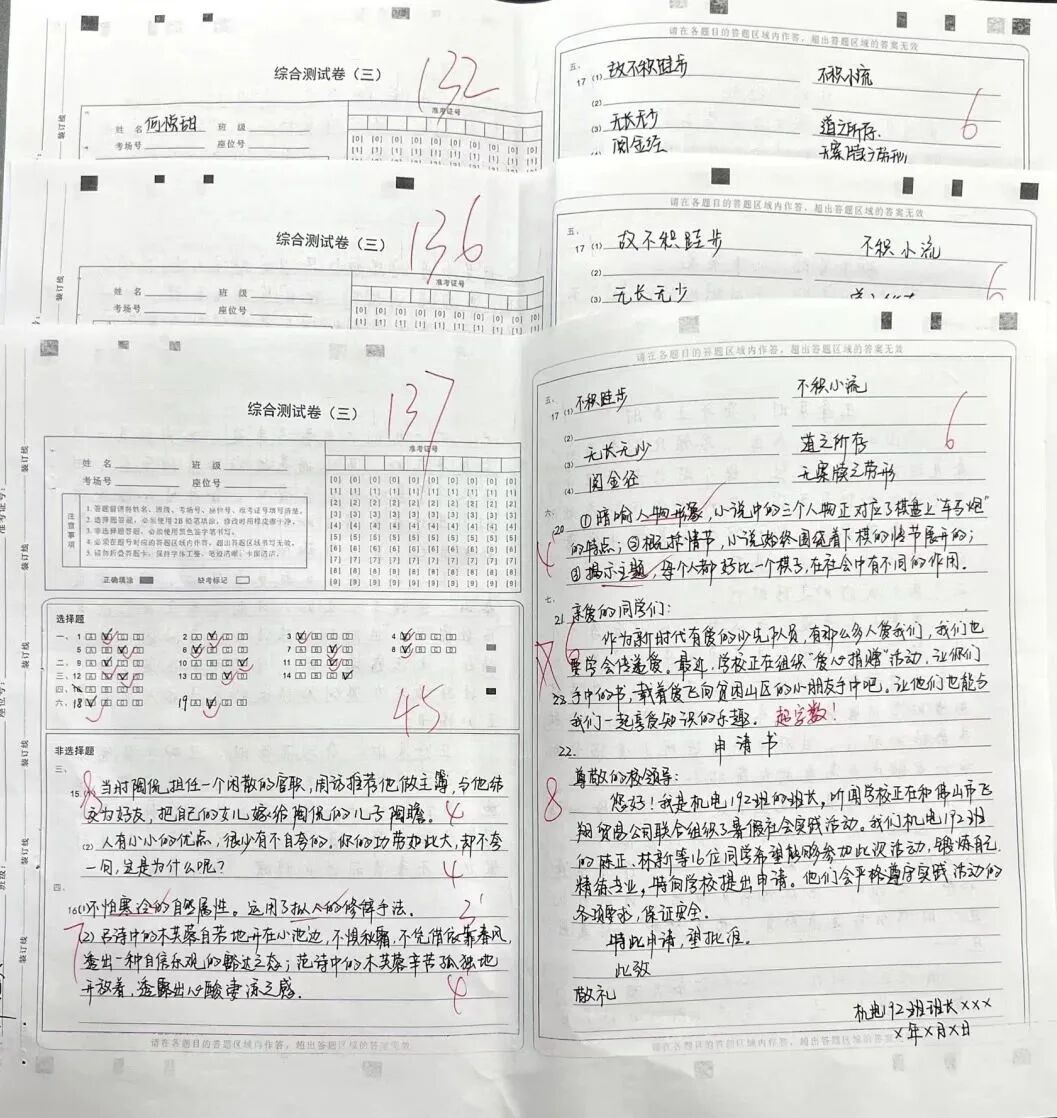 综合测试卷（三）
132
准考证号
姓 名 班 级
考场号 座位号
装订线
请在各题目的答题区域内作答，超出答题区域的答案无效
五、
17 (1) 故不积跬步 不积小流
(2)
(3) 无长无少 道之所存
(4) 阅金经 无案牍之劳形
6
综合测试卷（三）
136
准考证号
姓 名 班 级
考场号 座位号
装订线
请在各题目的答题区域内作答，超出答题区域的答案无效
五、
17 (1) 故不积跬步 不积小流
(2)
(3) 无长无少
6
综合测试卷（三）
137
准考证号
姓 名 班 级
考场号 座位号
装订线
注意事项
1. 答题前请将姓名、班级、考场号、座位号、准考证号填写清楚。
2. 选择题答题，必须使用2B铅笔填涂，修改时用橡皮擦干净。
3. 非选择题答题，必须使用黑色签字笔书写。
4. 必须在题号对应的答题区域内作答，超出答题区域书写无效。
5. 请勿折叠答题卡。保持字体工整、笔迹清晰、卡面清洁。
正确填涂 缺考标记
选择题
一、1 2 3 4
5 6 7 8
二、9 10 11
三、12 13 14
四、16
六、18 19
45
非选择题
三、
15. (1) 当时陶侃担任一个闲散的官职，周访推荐他做主簿，与他结
交为好友，把自己的女儿嫁给陶侃的儿子陶瞻。
8
4
(2) 人有小小的优点，很少有不自夸的。你的功劳如此大，却不夸
一句，这是为什么呢？
4
四、
16(1)不怕寒冷的自然属性。运用了拟人的修辞手法。
3
(2) 吕诗中的木芙蓉自若地开在小池边，不惧秋霜，不凭借依靠春风，
透出一种自信乐观的豁达之态；范诗中的木芙蓉辛苦孤独地
开放着，透露出心酸凄凉之感。
7
4
请在各题目的答题区域内作答，超出答题区域的答案无效
请在各题目的答题区域内作答，超出答题区域的答案无效
五、
17 (1) 不积跬步 不积小流
(2)
(3) 无长无少 道之所存
(4) 阅金经 无案牍之劳形
6
六、
20 ①暗喻人物形象，小说中的三个人物正对应了棋盘上“车马炮”
的特点；②概括情节，小说始终围绕着下棋的情节展开的；
③揭示主题，每个人都好比一个棋子，在社会中有不同的作用。
4
七、
21 亲爱的同学们：
作为新时代有爱的少先队员，有那么多人爱我们，我们也
要学会传递爱。最近，学校正在组织“爱心捐赠”活动，让你们
手中的书，载着爱飞向贫困山区的小朋友手中吧。让他们也能与
我们一起享受知识的乐趣。 超字数！
22. 申请书
尊敬的校领导：
8
您好！我是机电192班的班长，听闻学校正在和佛山市飞
翔贸易公司联合组织了暑假社会实践活动。我们机电192班
的陈正、林新等16位同学希望能够参加此次活动，锻炼自己，
精练专业，特向学校提出申请。他们会严格遵守实践活动的
各项要求，保证安全。
特此申请，望批准。
此致
敬礼
机电192班班长×××
×年×月×日
请在各题目的答题区域内作答，超出答题区域的答案无效